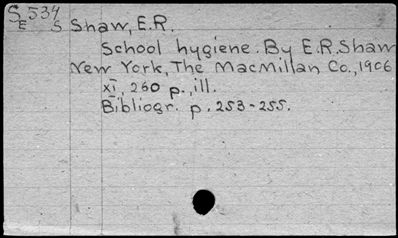 S 534
E S Shaw, E.R.
School hygiene. By E.R. Shaw
New York, The MacMillan Co., 1906
xi, 260 p., ill.
Bibliogr. p. 253-255.